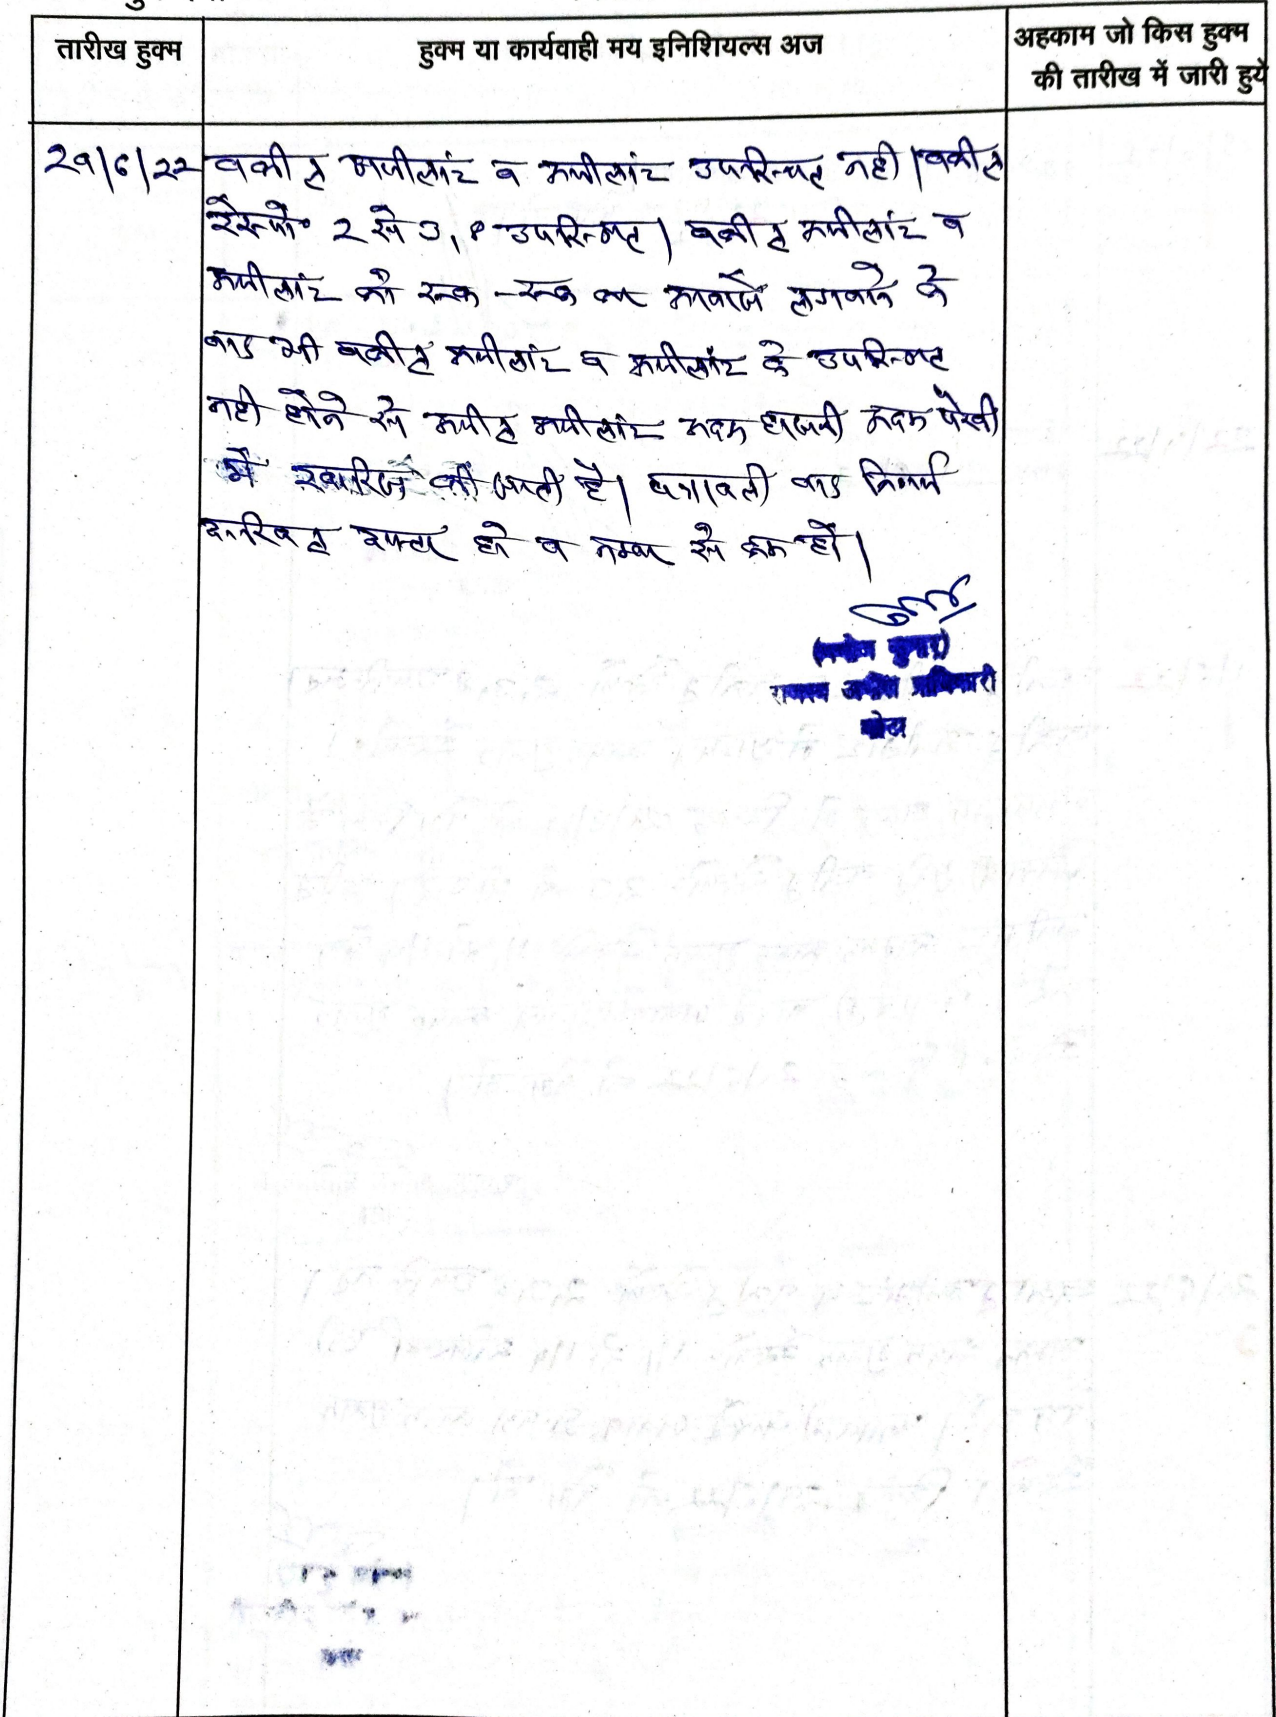 तारीख हुक्म
हुक्म या कार्यवाही मय इनिशियल्स अज
अहकाम जो किस हुक्म
की तारीख में जारी हुये
29/6/22 वकील अपीलांट व अपीलांट उपस्थित नही। वकील
रेस्पो॰ 2 से 3, 8 उपस्थित। वकील अपीलांट व
अपीलांट को रूक-रूक कर आवाजें लगवाने के
बाद भी वकील अपीलांट व अपीलांट के उपस्थित
नही होने से अपील अपीलांट अदम हाजरी अदम पैरवी
में खारिज की जाती है। पत्रावली बाद निर्णय
दाखिल दफ्तर हो व नम्बर से कम हों।
(मनोज कुमार)
राजस्व अपील प्राधिकारी
कोटा